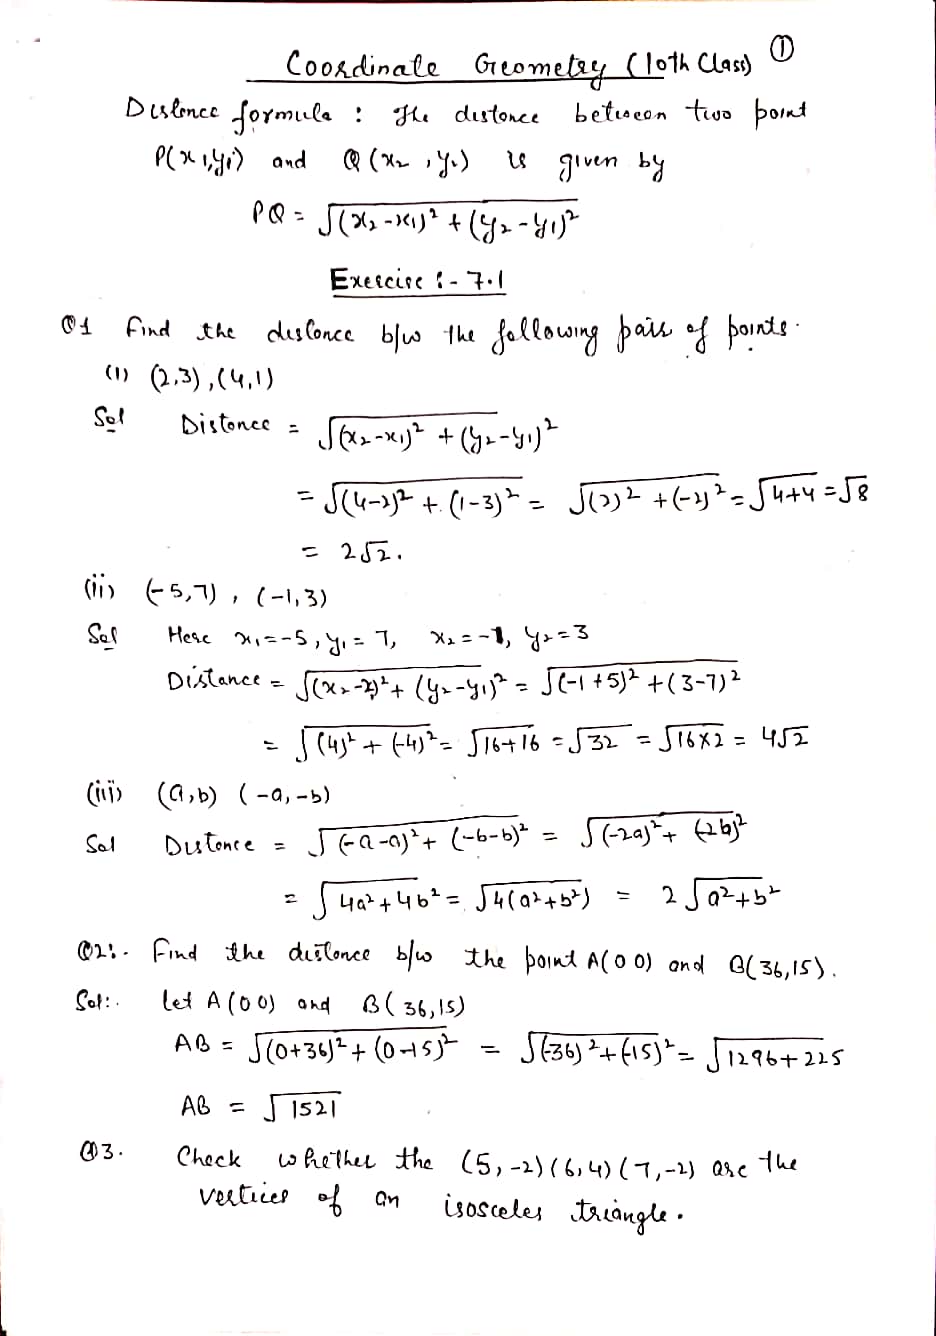 ①
Coordinate Geometry (10th Class)
Distance formula : The distance between two point
P(x₁,y₁) and Q(x₂,y₂) is given by
PQ = √((x₂-x₁)² + (y₂-y₁)²)
Exercise :- 7.1
Q1 Find the distance b/w the following pair of points.
(i) (2,3),(4,1)
Sol Distance = √((x₂-x₁)² + (y₂-y₁)²)
= √((4-2)² + (1-3)²) = √((2)² + (-2)²) = √(4+4) = √8
= 2√2.
(ii) (-5,7), (-1,3)
Sol Here x₁=-5, y₁=7, x₂=-1, y₂=3
Distance = √((x₂-x₁)² + (y₂-y₁)²) = √((-1+5)² + (3-7)²)
= √((4)² + (-4)²) = √(16+16) = √32 = √(16×2) = 4√2
(iii) (a,b) (-a,-b)
Sol Distance = √((-a-a)² + (-b-b)²) = √((-2a)² + (-2b)²)
= √(4a²+4b²) = √(4(a²+b²)) = 2√(a²+b²)
Q2:- Find the distance b/w the point A(0 0) and B(36,15).
Sol:- Let A(0 0) and B(36,15)
AB = √((0+36)² + (0-15)²) = √((-36)² + (-15)²) = √(1296+225)
AB = √1521
Q3. Check whether the (5,-2) (6,4) (7,-2) are the
vertices of an isosceles triangle.